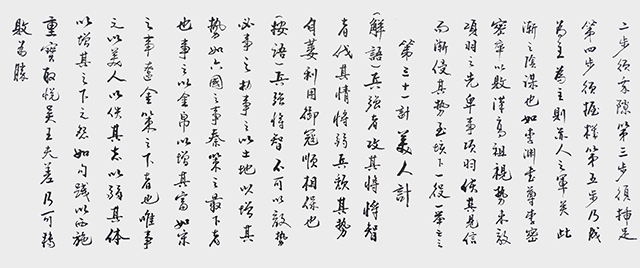 二步須乘隙第三步須插足
第四步須握機第五步乃成
為主為主則并人之軍矣此
漸之陰謀也如李淵書尊李密
密卒以敗漢高祖視勢未敵
項羽之先卑事項羽使其見信
而漸侵其勢至垓下一役一舉亡之
第三十一計 美人計
(解語)兵強者攻其將將智
者伐其情將弱兵頹其勢
自萎利用御寇順相保也
(按語)兵強將智不可以敵勢
必事之事之以土地以增其
勢如六國之事秦策之最下者
也事之以金帛以增其富如宋
之事遼金策之下者也唯事
之以美人以佚其志以弱其体
以增其下之怨如勾踐以西施
重寶取悅吳王夫差乃可轉
敗為勝